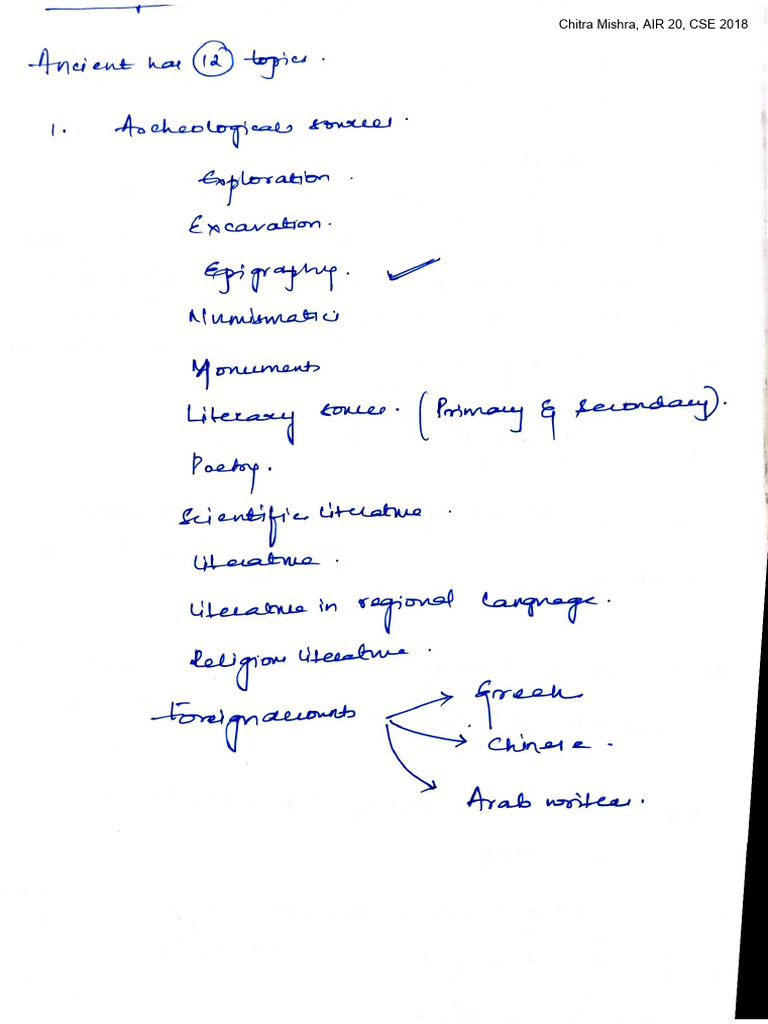 Chitra Mishra, AIR 20, CSE 2018
Ancient has 12 topics.
1. Archeological sources.
Exploration.
Excavation.
Epigraphy. ✓
Numismatic
Monuments
Literary sources. (Primary & Secondary).
Poetry.
Scientific literature.
Literature.
Literature in regional language.
Religious literature.
Foreign accounts → Greek
→ Chinese.
→ Arab writers.